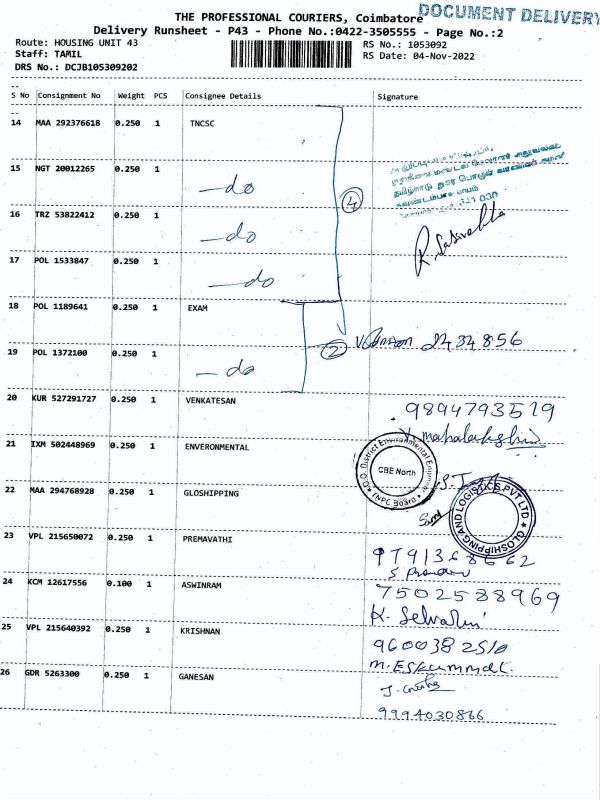 DOCUMENT DELIVERY
THE PROFESSIONAL COURIERS, Coimbatore
Delivery Runsheet - P43 - Phone No.:0422-3505555 - Page No.:2
Route: HOUSING UNIT 43
RS No.: 1053092
Staff: TAMIL
RS Date: 04-Nov-2022
DRS No.: DCJB105309202
S No Consignment No Weight PCS Consignee Details Signature
14 MAA 292376618 0.250 1 TNCSC
15 NGT 20012265 0.250 1 -do
16 TRZ 53822412 0.250 1 -do
4
17 POL 1533847 0.250 1 -do
18 POL 1189641 0.250 1 EXAM
2 2434856
19 POL 1372100 0.250 1 -do
20 KUR 527291727 0.250 1 VENKATESAN
9894793519
V. mahalakshmi
21 IXM 502448969 0.250 1 ENVERONMENTAL
O/O. District Environmental Engineer
CBE North
TNPC Board
22 MAA 294768928 0.250 1 GLOSHIPPING
GLOSHIPPING AND LOGISTICS PVT LTD
23 VPL 215650072 0.250 1 PREMAVATHI
9791368662
24 KCM 12617556 0.100 1 ASWINRAM
7502588969
K. Selvarani
25 VPL 215640392 0.250 1 KRISHNAN
9600382510
26 GDR 5263300 0.250 1 GANESAN
9994030866